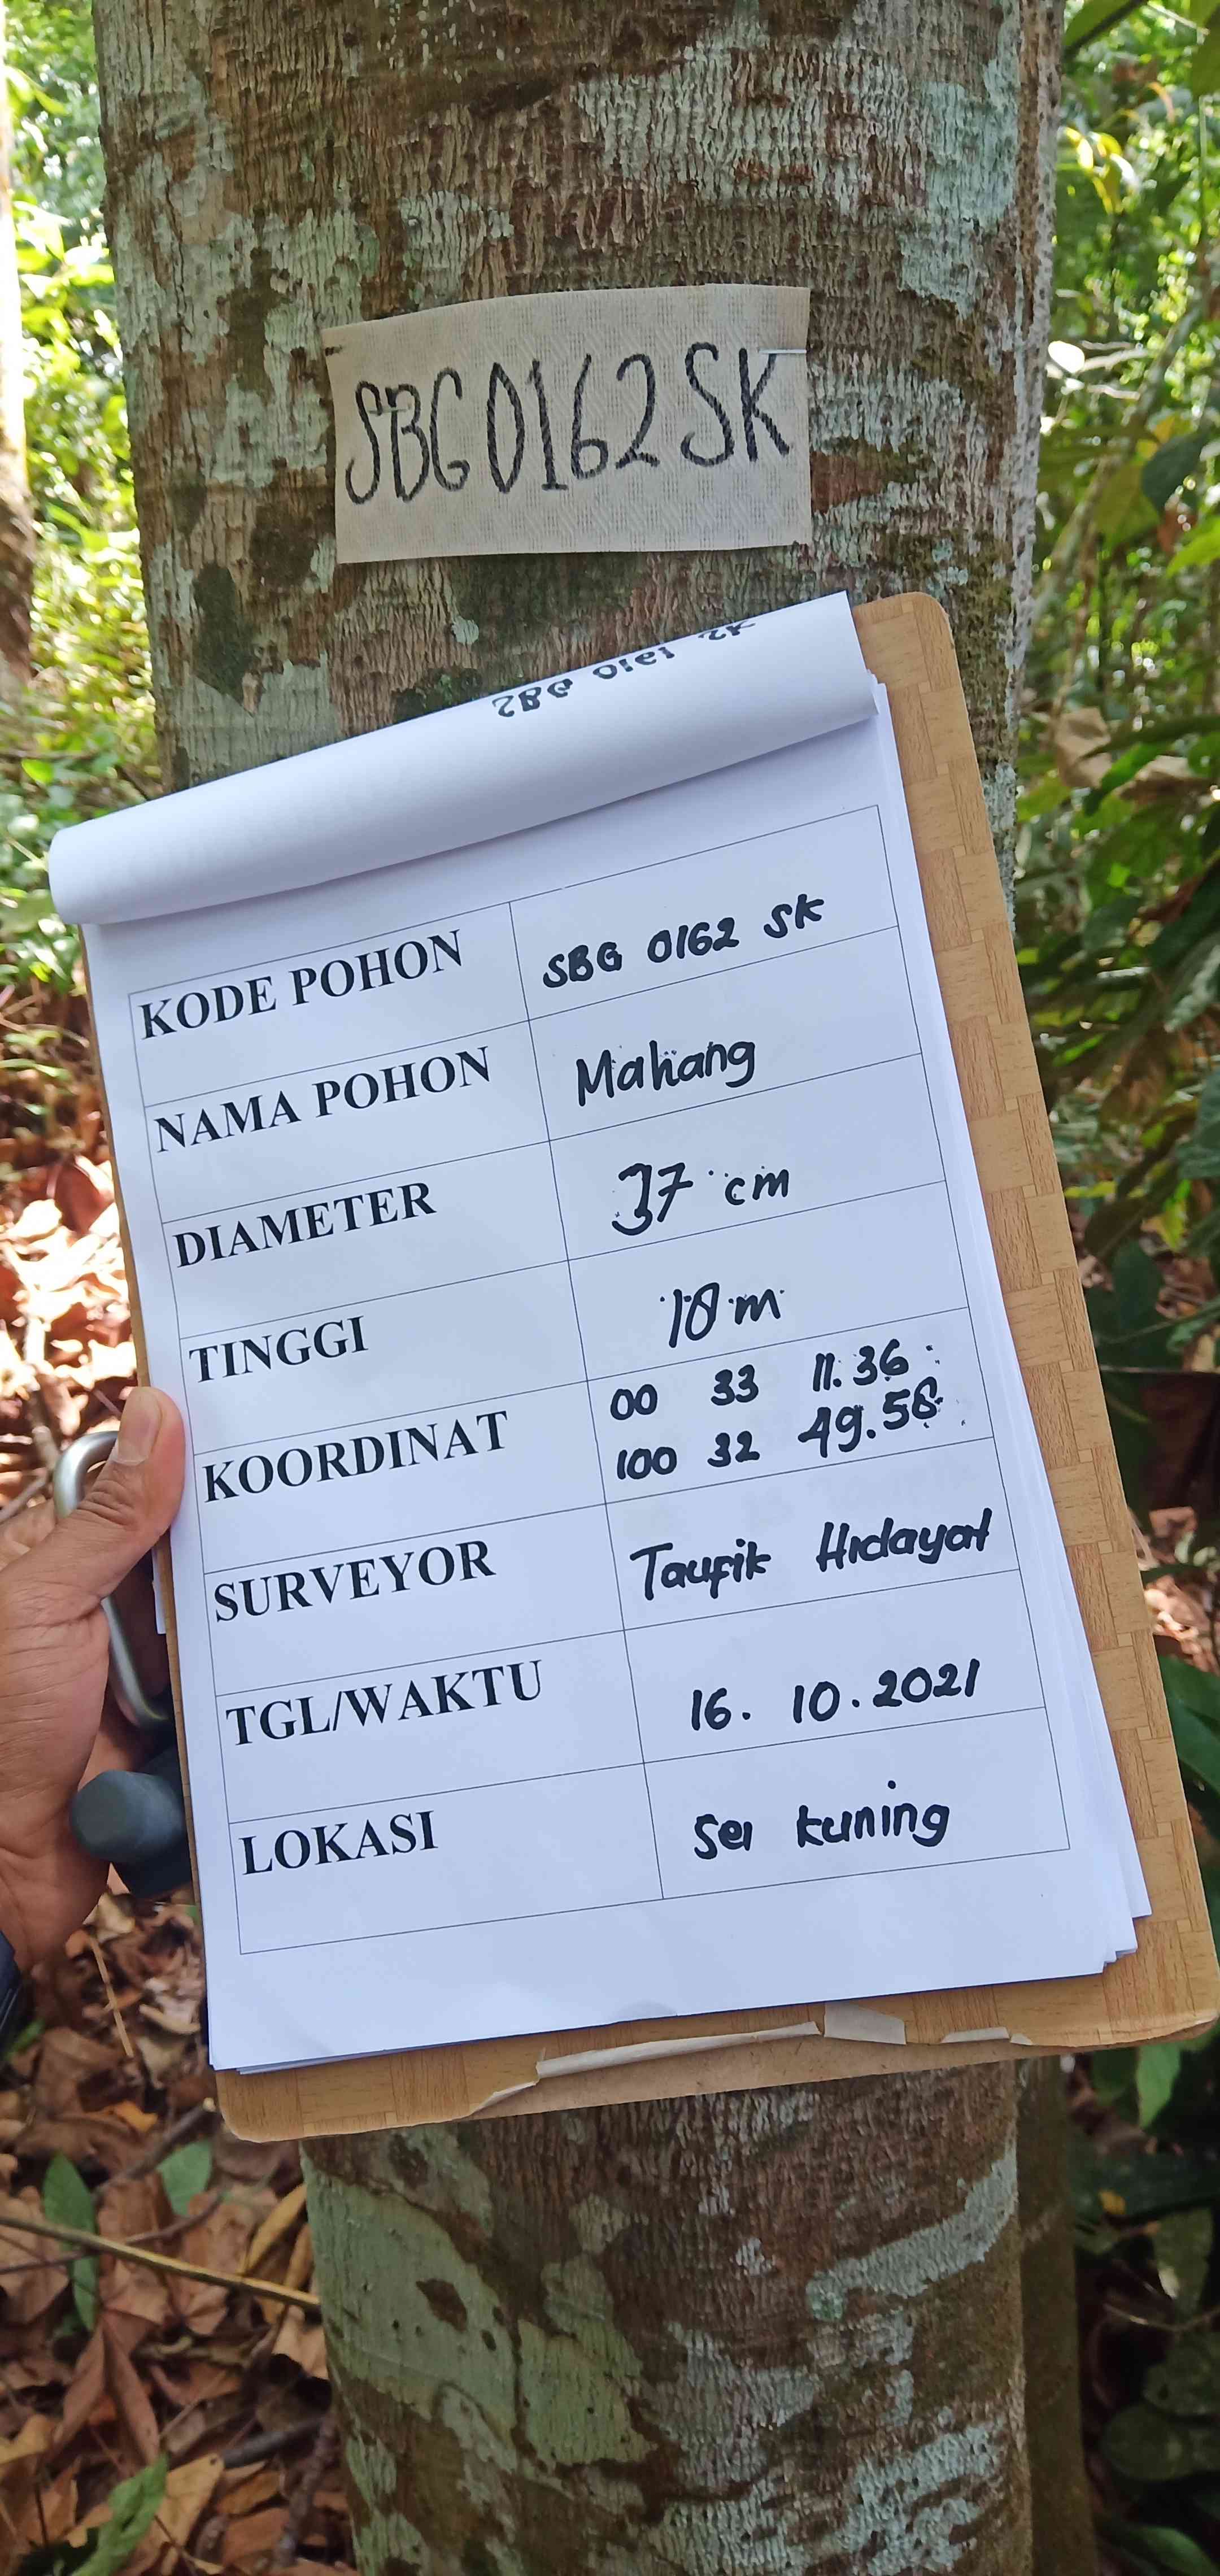 SBG0162SK
SBG 0161 SK
KODE POHON SBG 0162 SK
NAMA POHON Mahang
DIAMETER 37 cm
TINGGI 18 m
KOORDINAT 00 33 11.36
100 32 49.58
SURVEYOR Taufik Hidayat
TGL/WAKTU 16. 10. 2021
LOKASI Sei kuning